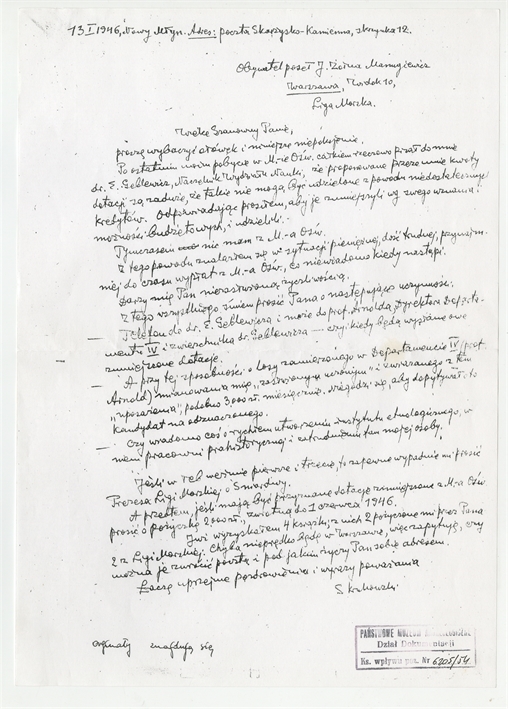 13 I 1946, Nowy Młyn. Adres: poczta Skarżysko-Kamienna, skrynka 12.
Obywatel poseł J. Żółna Manugiewicz
Warszawa, Widok 10,
Liga Morska.
Wielce Szanowny Panie,
proszę wybaczyć ołówek i niniejsze niepokojenie.
Po ostatnim moim pobycie w M-ie Ośw. całkiem rzeczowo pisał do mnie
dr. E. Geblewicz, Naczelnik Wydziału Nauki, że proponowane przeze mnie kwoty
dotacji są za duże, że takie nie mogą być udzielone z powodu niedostatecznych
kredytów. Odpowiadając prosiłem, aby je zmniejszyli wg swego uznania i
możności budżetowych, i udzielili.
Tymczasem nic mam z M.-a Ośw.
Z tego powodu znalazłem się w sytuacji pieniężnej, dość trudnej, przynajm.
niej do czasu wypłat z M.-a Ośw., co niewiadomo kiedy nastąpi.
Darzy mię Pan nieraz życzliwością.
Z tego wszystkiego śmiem prosić Pana o następujące uczynności:
— Telefon do dr. E. Geblewicza i może do prof. Arnolda, Dyrektora Departa-
mentu IV i zwierzchnika dr. Geblewicza — czy i kiedy będą wypłacone
zmniejszone dotacje.
— A przy tej sposobności o losy zamierzonego w Departamencie IV (prof.
Arnold) mianowania mię i związanego z tem
"uposażenia", podobno 3000 zł. miesięcznie. Niegodzi się, aby dopytywał o to
kandydat na odznaczonego.
— Czy wiadomo coś o rychłem utworzeniu instytutu etnologicznego, w
niem pracowni prahistorycznej i zatrudnieniu tam mojej osoby.
Jeśli w rel weźmie pierwsze i trzecie, to zapewne wypadnie mi prosić
Prezesa Ligi Morskiej o
A przedtem, jeśli mają być przyznane dotacje zmniejszone z M.-a Ośw
prosić o pożyczkę 2000 zł., zwrotną do 1 czerwca 1946.
Już wyzyskałem 4 książki; z nich 2 pożyczone mi przez Pana
2 z Ligi Morskiej. Chyba nieprędko będę w Warszawie, więc zapytuję, czy
można je zwrócić pocztą i pod jakim życzy Pan sobie adresem.
Łączę uprzejme pozdrowienia i wyrazy poważania
S. Krukowski
oryginały znajdują się
PAŃSTWOWE MUZEUM ARCHEOLOGICZNE
Dział Dokumentacji
Ks. wpływu poz. Nr 6205/54